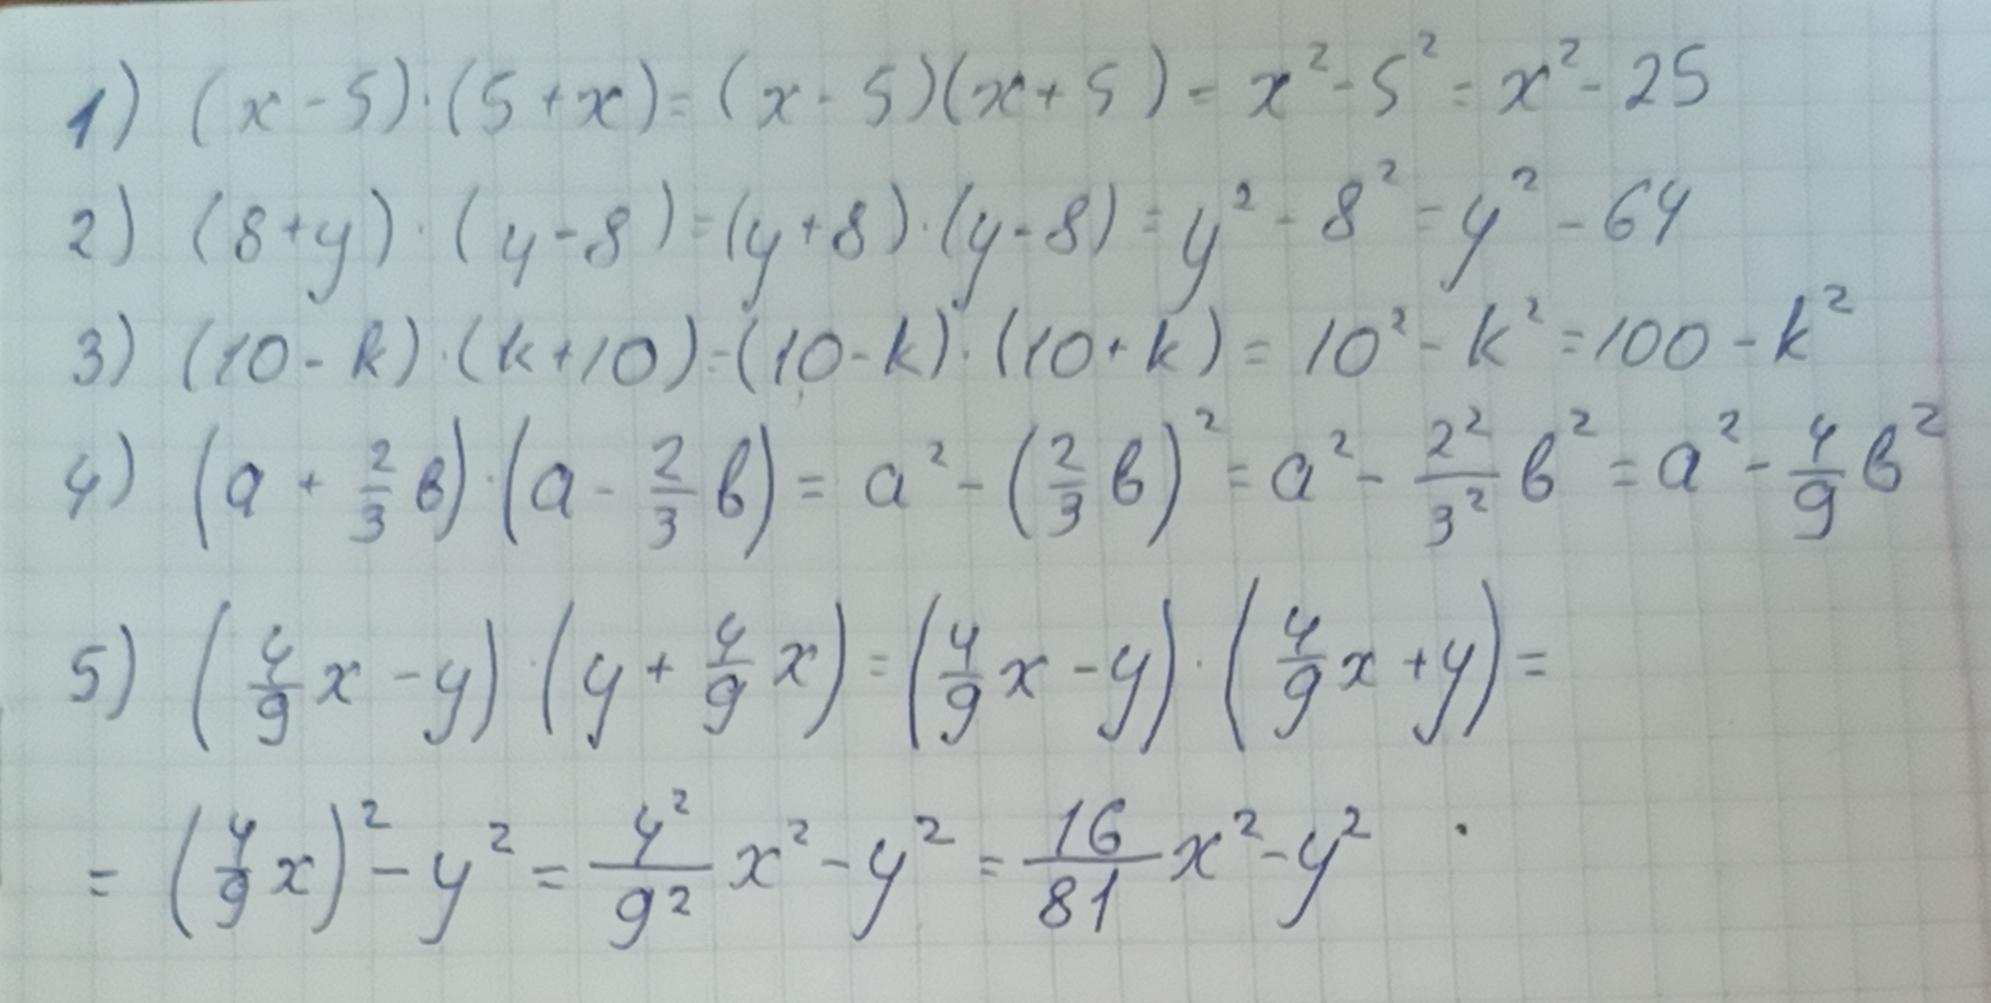 1) (x - 5)·(5 + x) = (x - 5)(x + 5) = x² - 5² = x² - 25
2) (8 + y)·(y - 8) = (y + 8)·(y - 8) = y² - 8² = y² - 64
3) (10 - k)·(k + 10) = (10 - k)·(10 + k) = 10² - k² = 100 - k²
4) (a + 2/3 в)·(a - 2/3 в) = a² - (2/3 в)² = a² - 2²/3² в² = a² - 4/9 в²
5) (4/9 x - y)·(y + 4/9 x) = (4/9 x - y)·(4/9 x + y) =
= (4/9 x)² - y² = 4²/9² x² - y² = 16/81 x² - y²